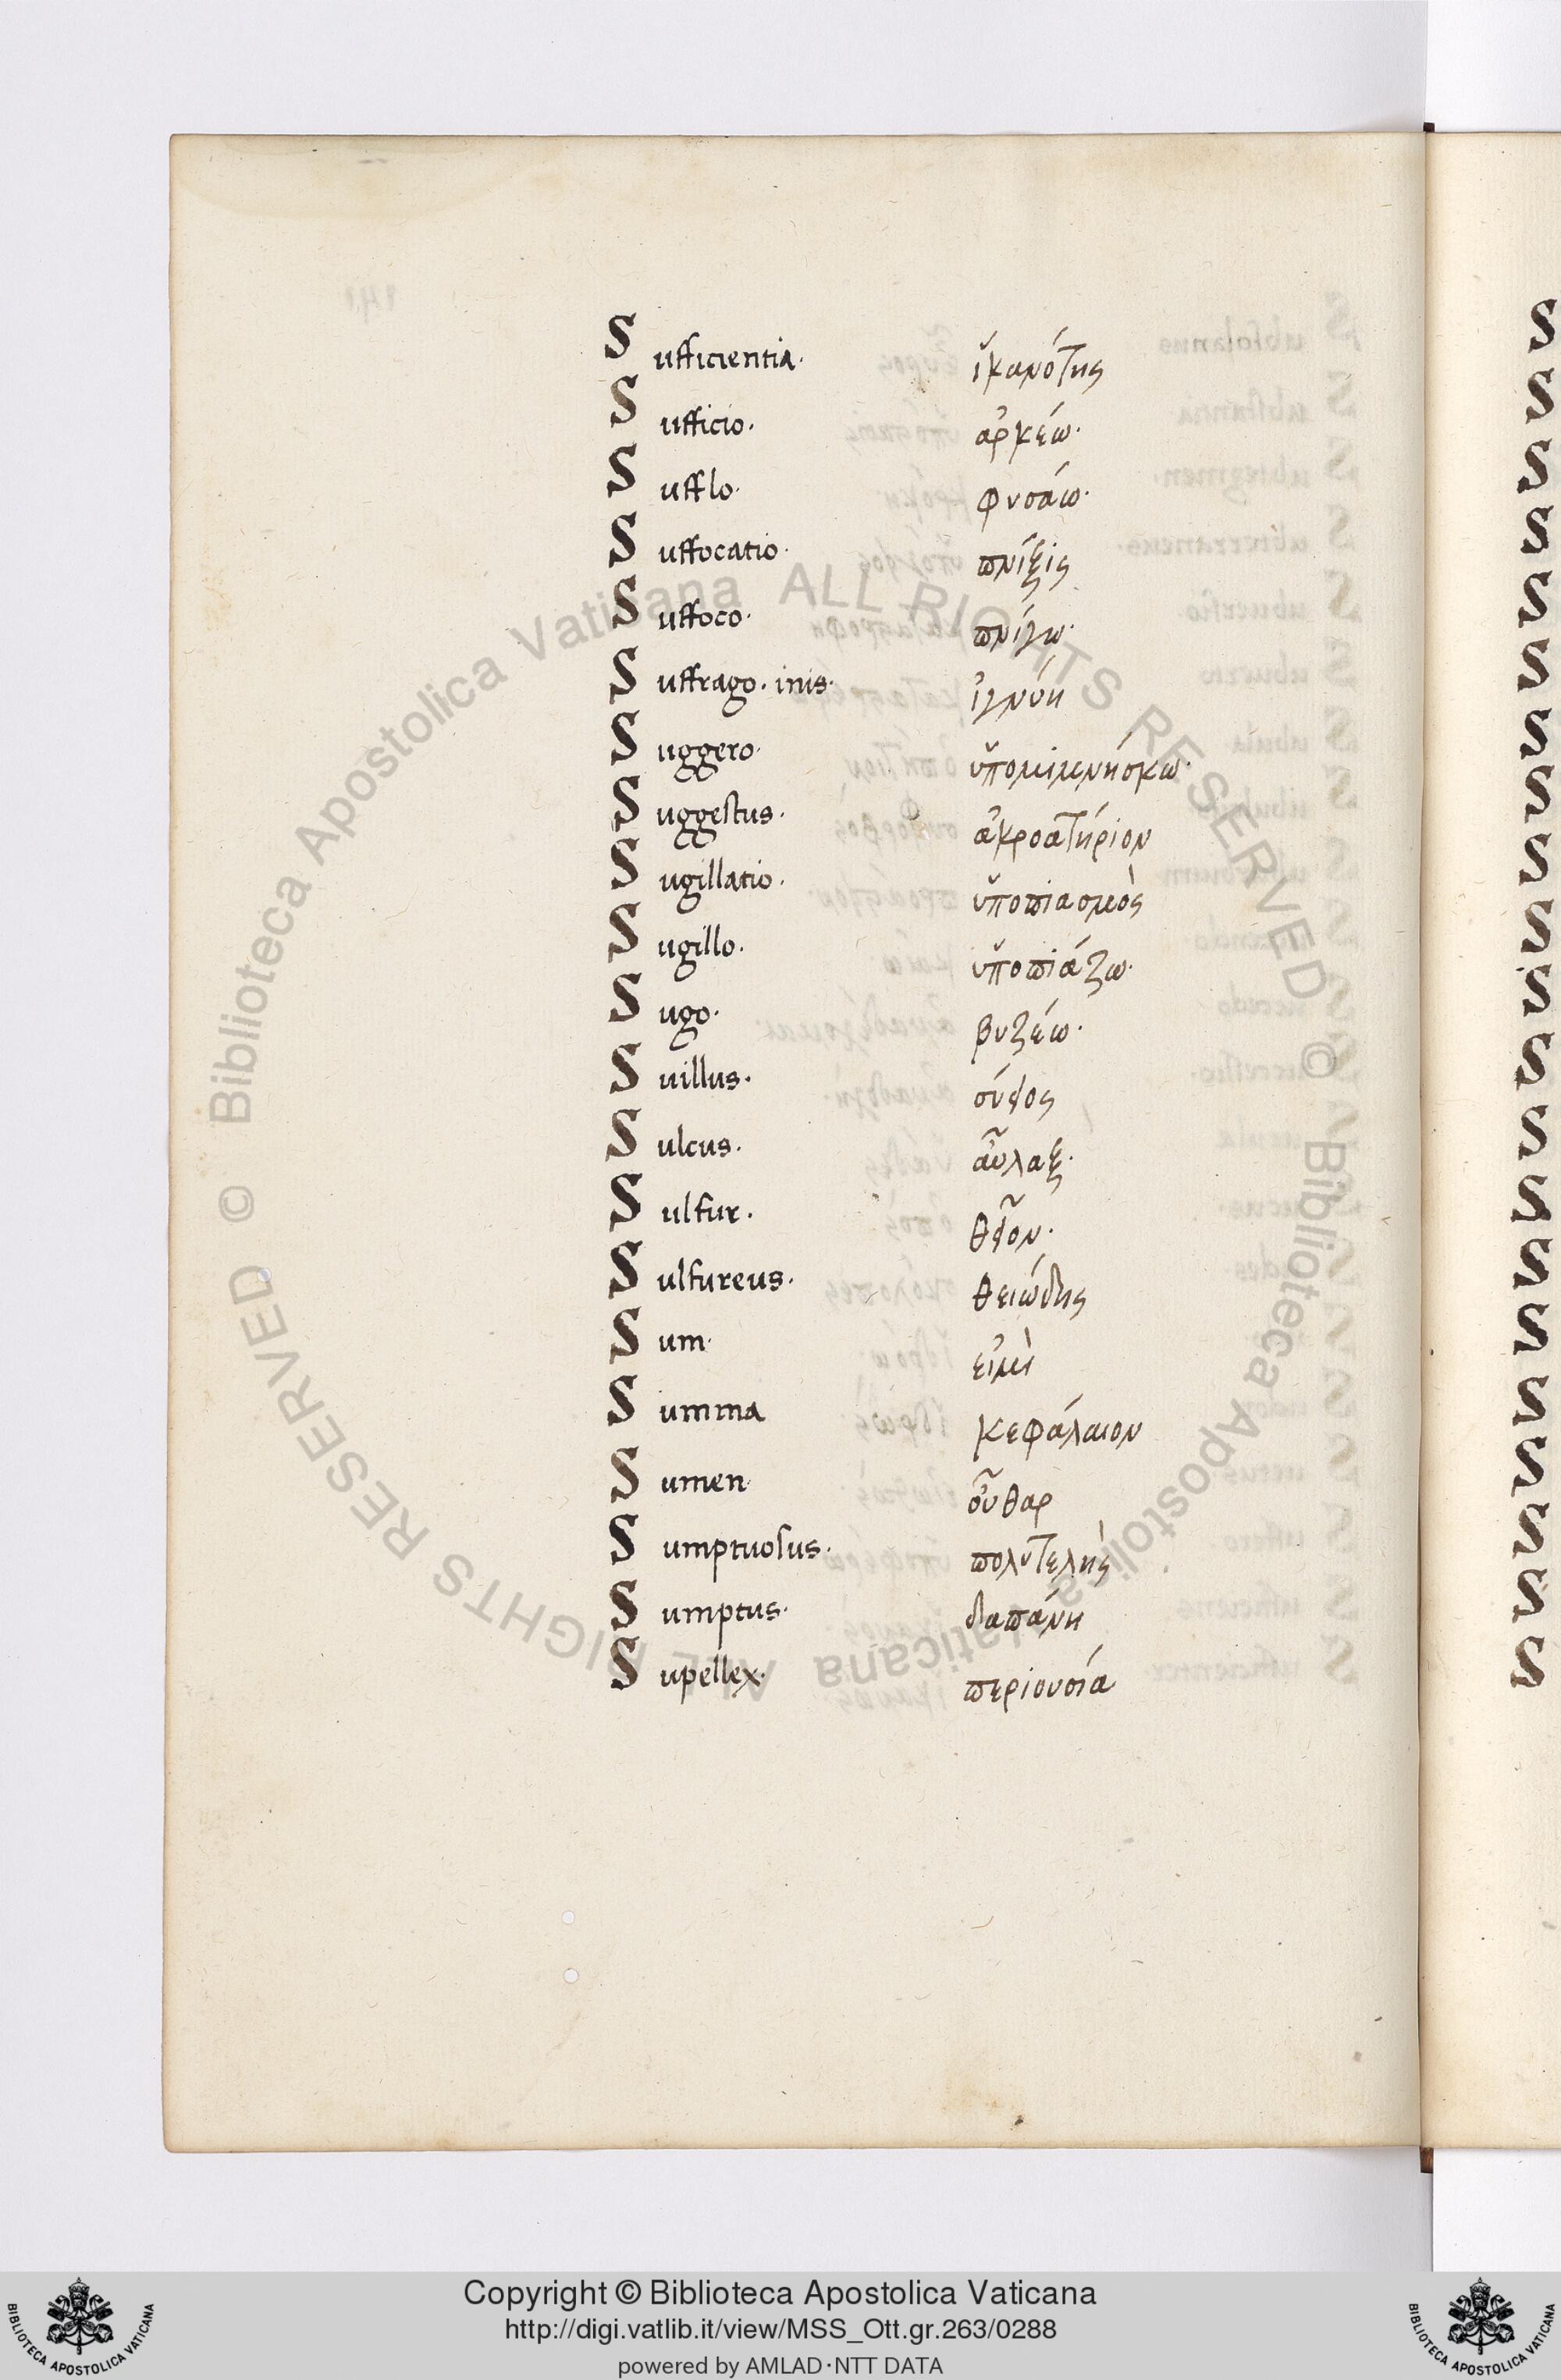 Sufficientia· ἱκανότης
Sufficio· ἀρκέω·
Sufflo· φυσάω·
Suffocatio· πνίξις
Suffoco· πνίγω·
Suffrago· inis· ἰγνύη
Suggero· ὑπομιμνήσκω·
Suggestus· ἀκροατήριον
Sugillatio· ὑποπιασμὸς
Sugillo· ὑποπιάζω·
Sugo· βυζέω·
Suillus· σύφος
Sulcus· αὖλαξ·
Sulfur· θεῖον·
Sulfureus· θειώδης
Sum· εἰμὶ
Summa κεφάλαιον
Sumen οὖθαρ
Sumptuosus· πολυτελὴς
Sumptus· δαπάνη
Supellex· περιουσία
© Biblioteca Apostolica Vaticana ALL RIGHTS RESERVED
© Biblioteca Apostolica Vaticana ALL RIGHTS RESERVED
Copyright © Biblioteca Apostolica Vaticana
http://digi.vatlib.it/view/MSS_Ott.gr.263/0288
powered by AMLAD·NTT DATA
BIBLIOTECA APOSTOLICA VATICANA
BIBLIOTECA APOSTOLICA VATICANA